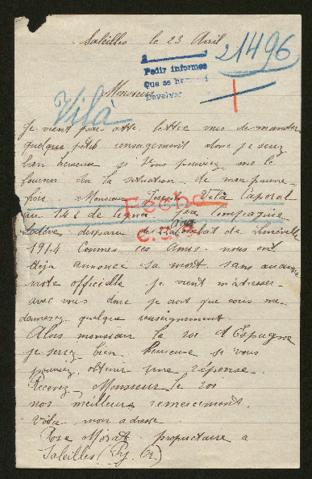 Saleilles le 23 Avril
21496
A
Pedir informes
Que se
Devolver
Monsieur
Vilà
Je vient par cette lettre vous demander
quelque petit renseignement donc je serez
bien heureuse si vous pouvez me le
fournir sur la situation de mon pauvre
frère Monsieur Vilà Caporal
au 142 de ligne compagnie
Fecho
disparu de combat de Lunéville
C.S.
1914 Commes ces amis nous ont
déja annoncé sa mort sans aucune
note officielle je vient m'adresser
avec vous donc je sait que vous me
donnerez quelque renseignement.
Alors monsieur le roi d'Espagne
je serez bien heureuse si vous
pouvez obtenir une réponse.
Recevez Monsieur le roi
nos meilleurs remerciments.
Voila mon adresse
Rose Morat propriétaire a
Saleilles (Py. Or)